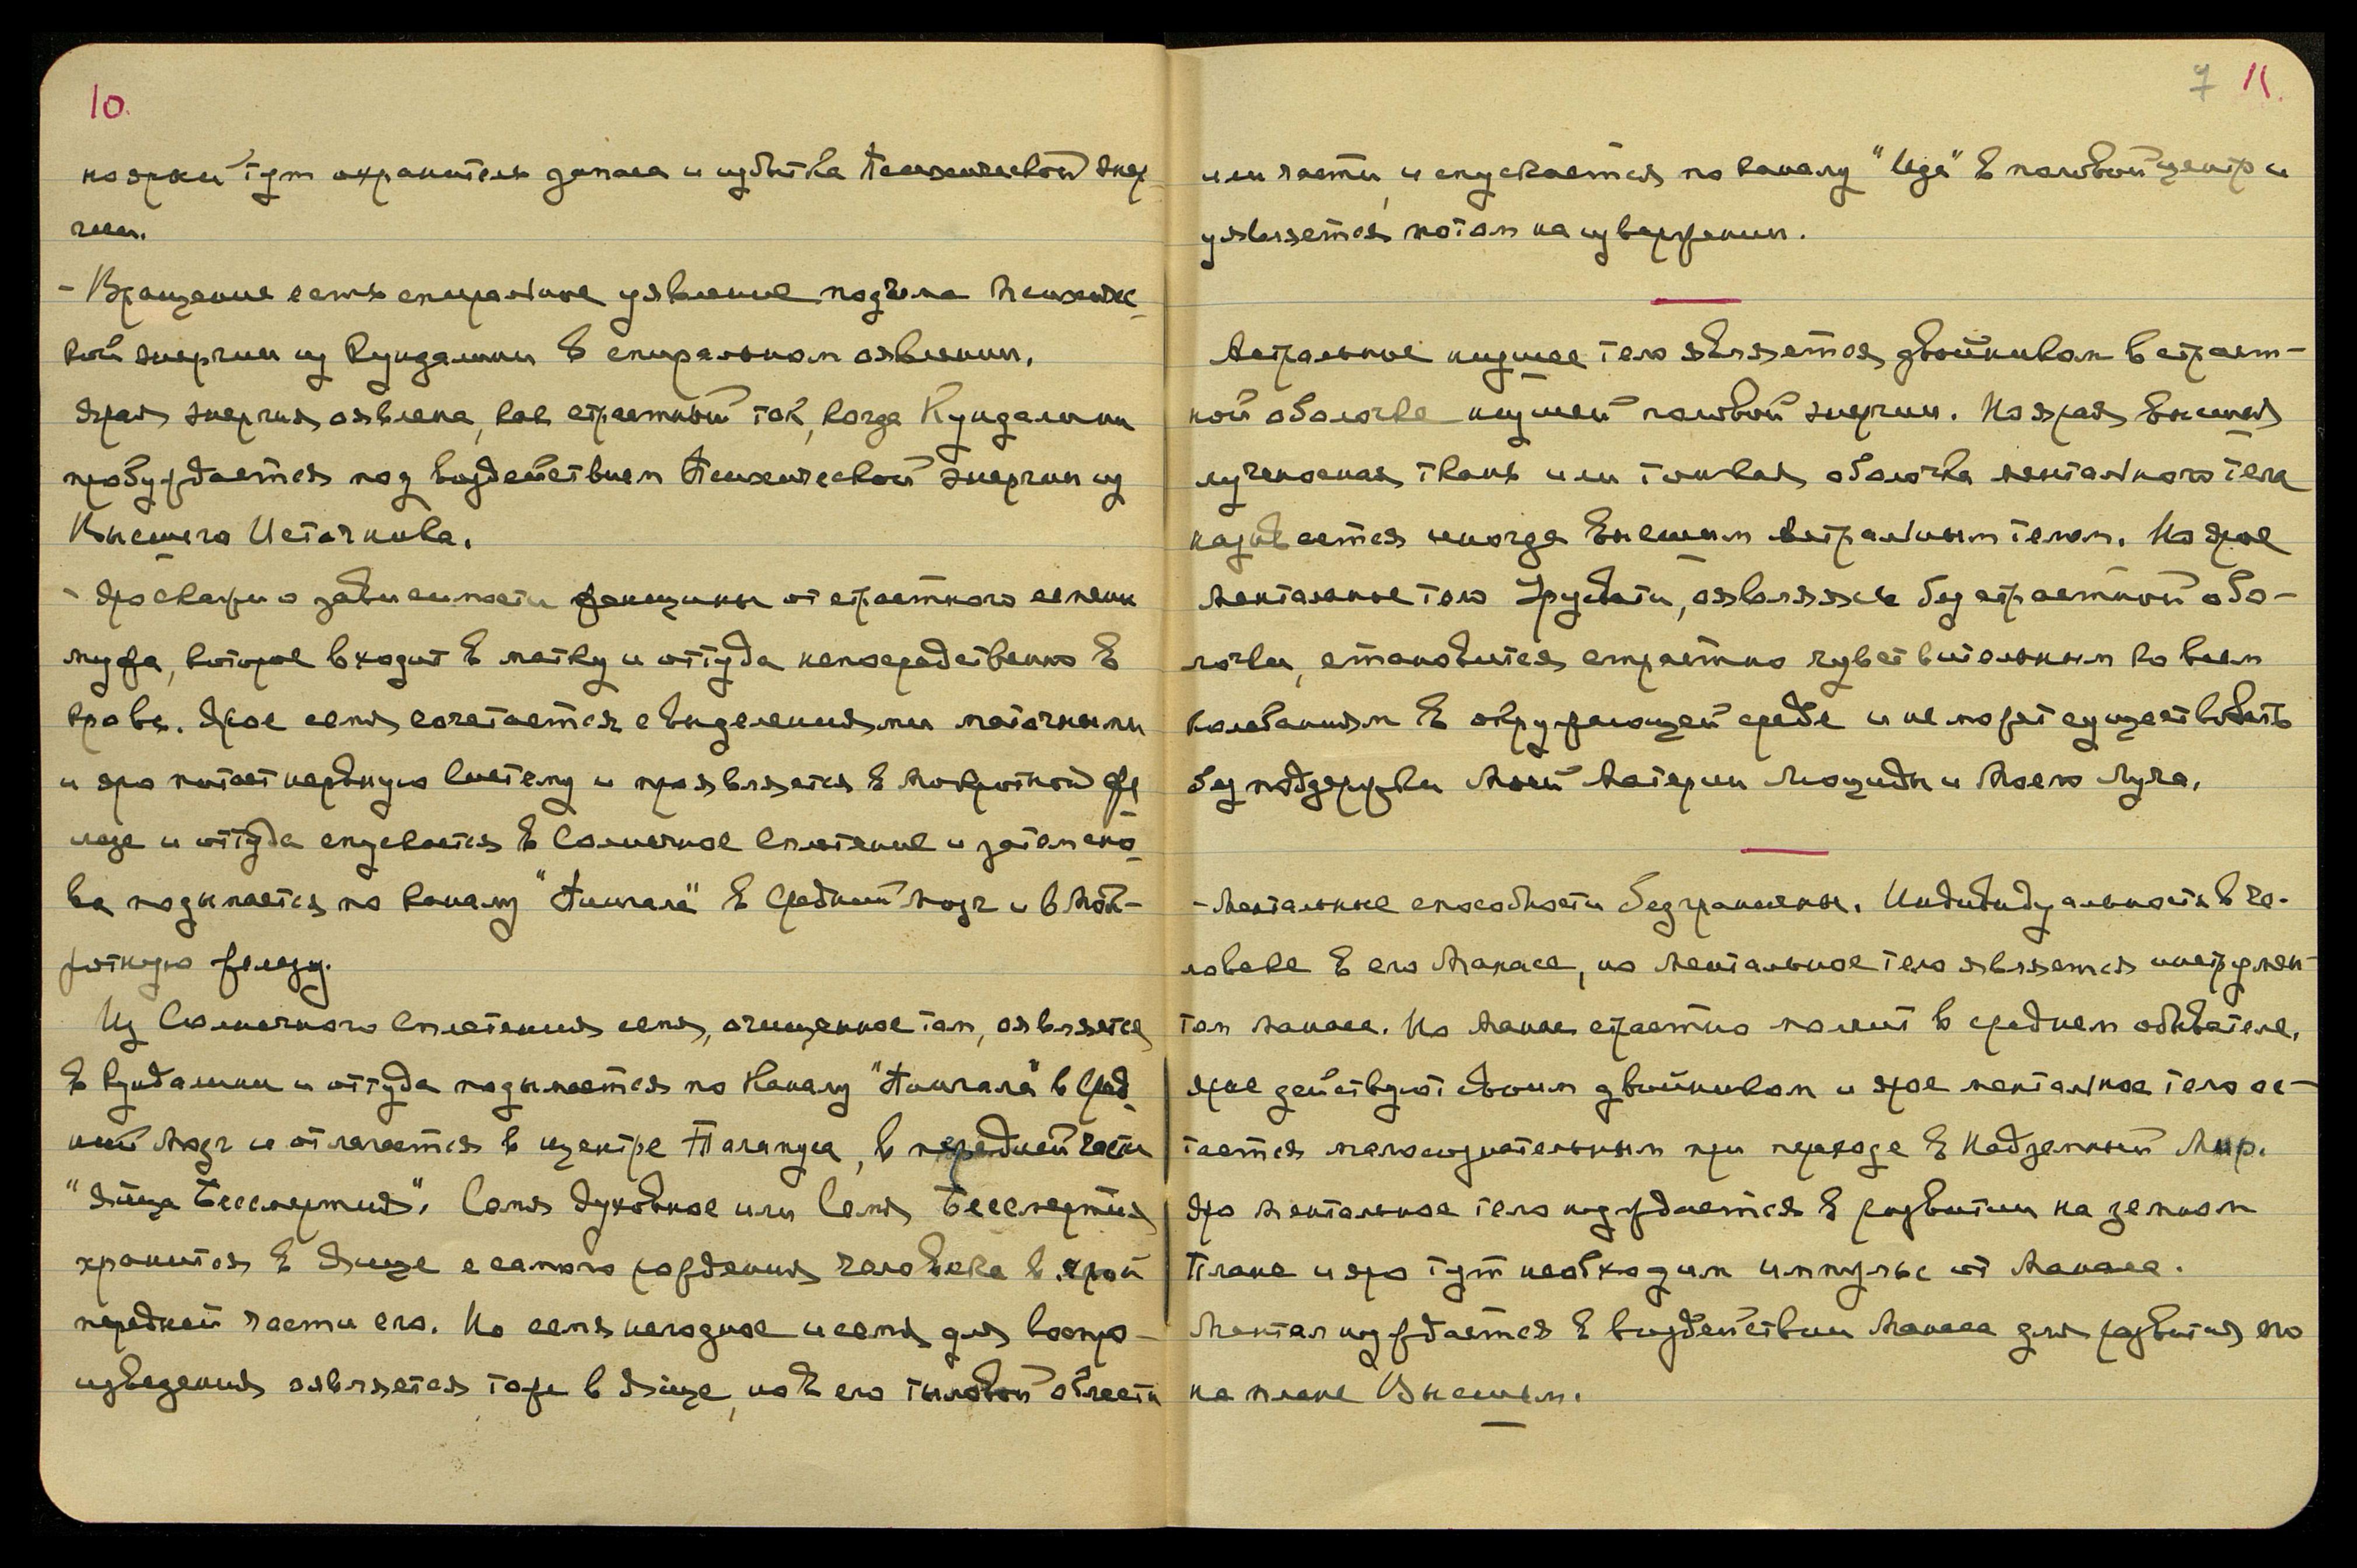 10.
но ярый тут охранитель запаса и избытка Психической Энер
гии.
- Вращение есть спиральное уявление подъема Психичес
кой энергии из Кундалини в спиральном явлении.
Ярая энергия оявлена, как страстный ток, когда Кундалини
пробуждается под воздействием Психической энергии из
Высшего Источника.
- Яро скажи о зависимости женщины от страстного семени
мужа, которое входит в матку и оттуда непосредственно в
кровь. Ярое семя сочетается с выделениями маточными
и яро питает нервную систему и проявляется в мокротной же
лезе и оттуда спускается в Солнечное Сплетение и затем сно
ва подымается по каналу "Пингала" в Средний мозг и в Мок-
ротную железу.
Из Солнечного Сплетения семя, очищенное там, оявляется
в Кундалини и оттуда подымается по Каналу "Пингала" в Сред
ний мозг и отлагается в центре Таламуса, в передней части
"Яйца Бессмертия". Семя духовное или Семя Бессмертия
хранится в Яйце с самого рождения человека в ярой
передней части его. Но семя негодное и семя для воспро-
изведения оявляется тоже в Яйце, но в его тыловой области
7 11.
или части, и спускается по каналу "Ида" в половой центр и
уявляется потом на извержении.
Астральное низшее тело является двойником в страст-
ной оболочке низшей половой энергии. Но ярая высшая
лученосная ткань или тонкая оболочка ментального тела
называется иногда высшим астральным телом. Но ярое
ментальное тело Урусвати, оявляясь без страстной обо-
лочки, становится страстно чувствительным ко всем
колебаниям в окружающей среде и не может существовать
без поддержки Моей Материи Люциды и Моего Луча.
- Ментальные способности безграничны. Индивидуальность в че-
ловеке в его Манасе, но ментальное тело является инструмен-
том манаса. Но Манас страстно молчит в среднем обывателе.
Ярые действуют своим двойником и ярое ментальное тело ос-
тается малосознательным при переходе в Надземный Мир.
Яро ментальное тело нуждается в развитии на земном
Плане и яро тут необходим импульс от Манаса.
Ментал нуждается в воздействии Манаса для развития его
на плане Высшем.